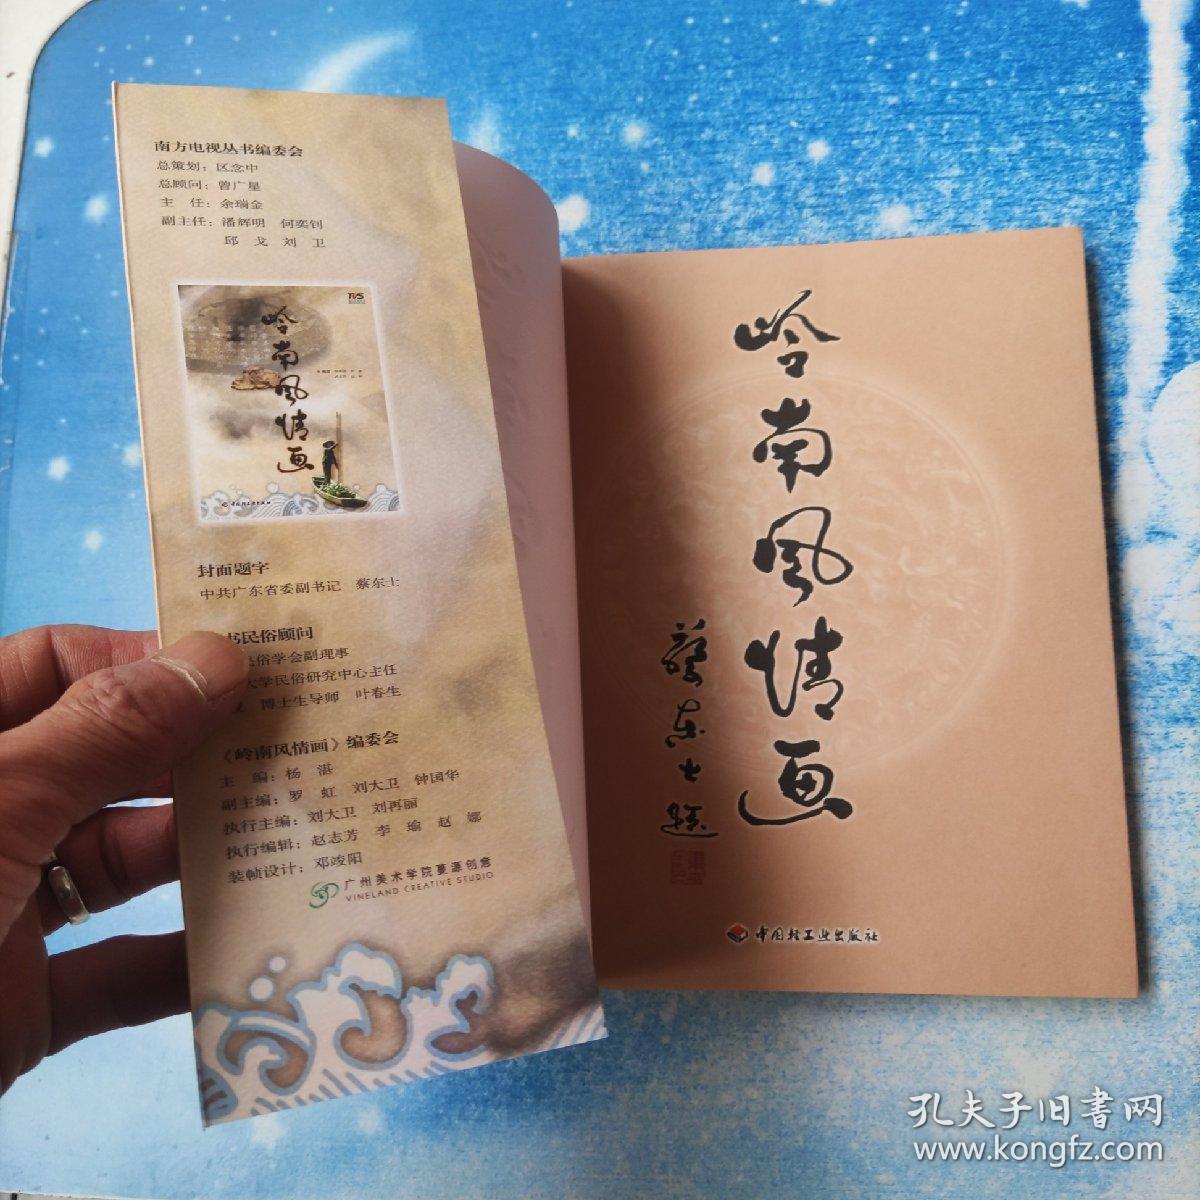 南方电视丛书编委会
总策划：区念中
总顾问：曾广星
主 任：余瑞金
副主任：潘辉明 何奕钊
邱 戈 刘 卫
TVS
岭南风情画
中国轻工业出版社
封面题字
中共广东省委副书记 蔡东士
书民俗顾问
民俗学会副理事
大学民俗研究中心主任
博士生导师 叶春生
《岭南风情画》编委会
主 编：杨 湛
副主编：罗 虹 刘大卫 钟国华
执行主编：刘大卫 刘再丽
执行编辑：赵志芳 李 瑜 赵 娜
装帧设计：邓竣阳
广州美术学院蔓源创意
VINELAND CREATIVE STUDIO
岭南风情画
蔡东士题
中国轻工业出版社
孔夫子旧書网
www.kongfz.com